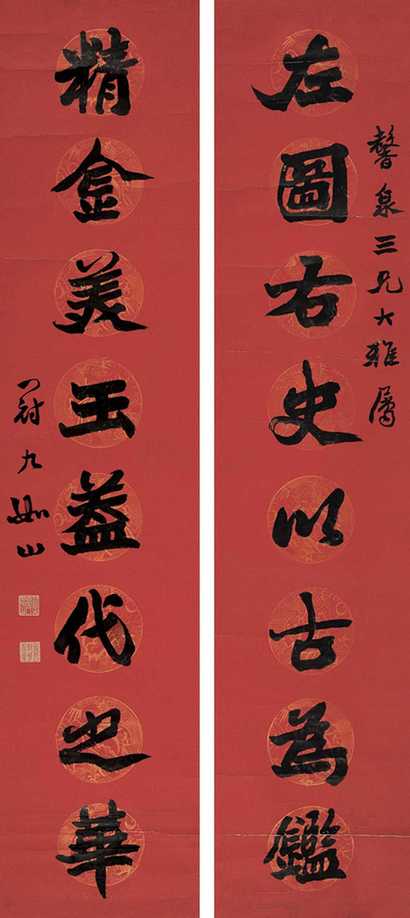 馨泉三兄大雅屬
左圖右史以古為鑑
精金美玉蓋代之華
冠九如山